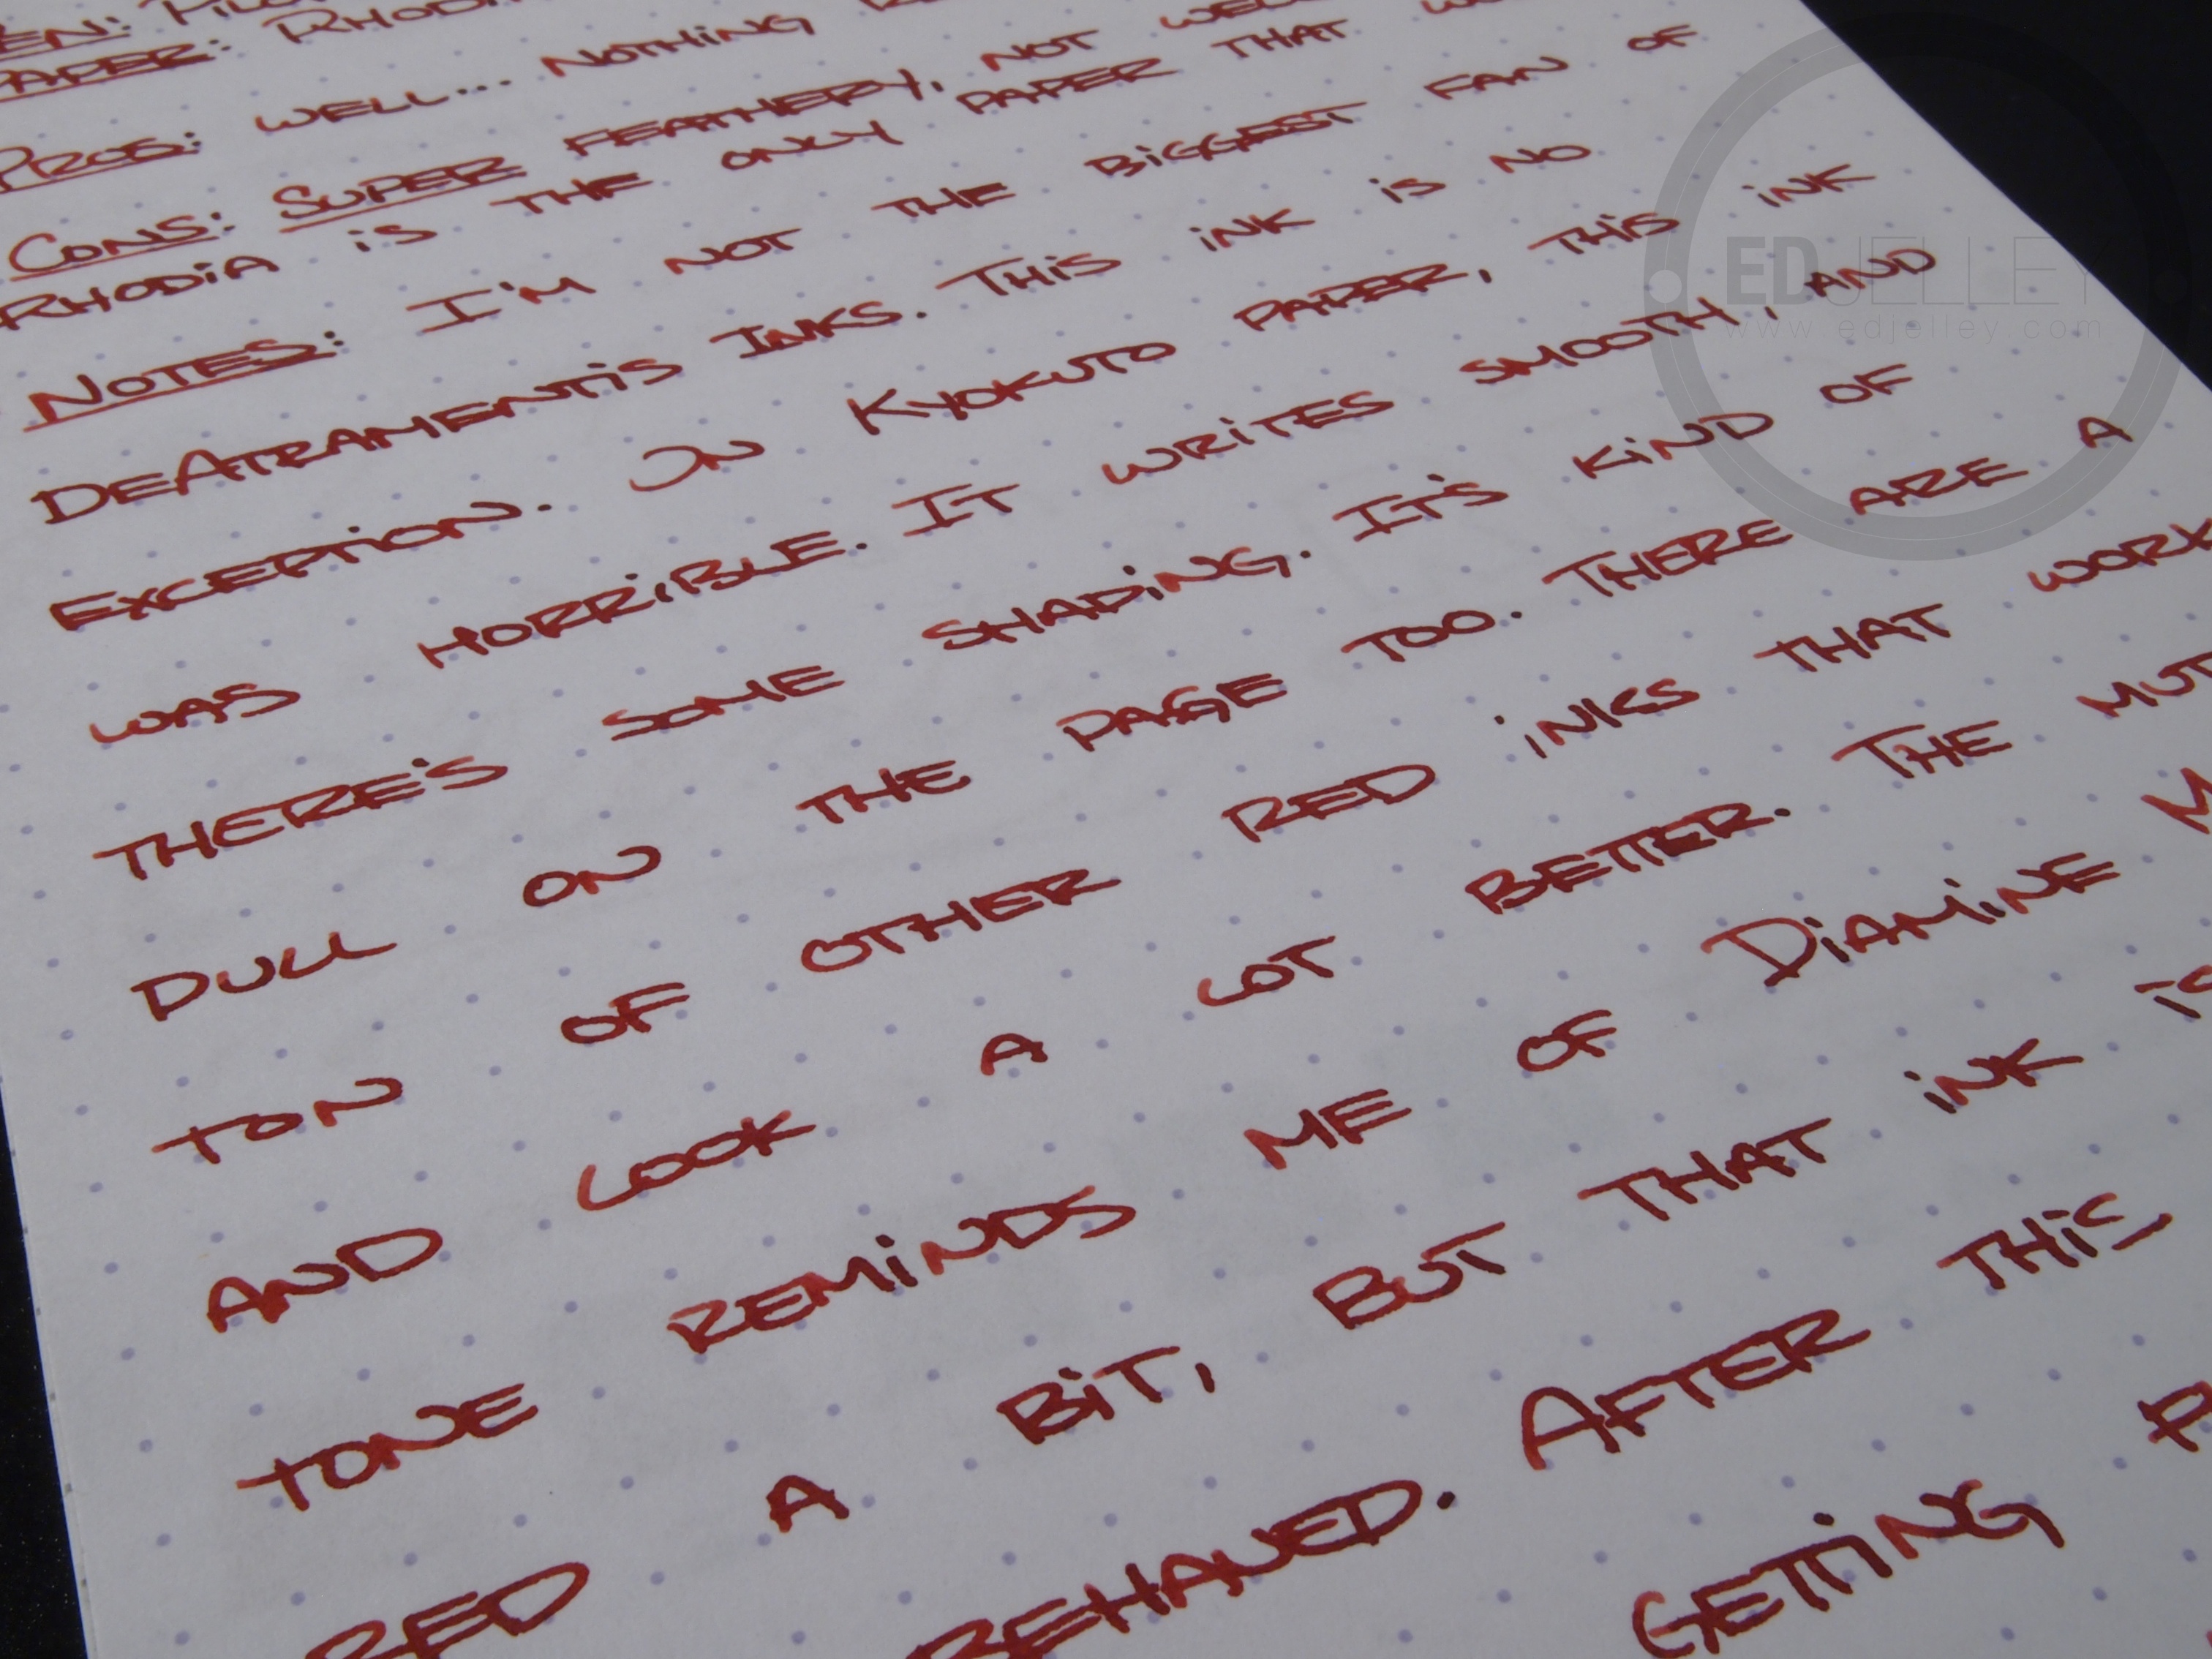 PAPER: RHODI
PROS: WELL... NOTHING
CONS: SUPER FEATHERY, NOT WEL
RHODIA IS THE ONLY PAPER THAT
NOTES: I'M NOT THE BIGGEST FAN OF
DEATRAMENTIS INKS. THIS INK IS NO
EXCEPTION. ON KYOKUTO PAPER, THIS INK
WAS HORRIBLE. IT WRITES SMOOTH, AND
THERE'S SOME SHADING. IT'S KIND OF
DULL ON THE PAGE TOO. THERE ARE A
TON OF OTHER RED INKS THAT WORK
AND LOOK A LOT BETTER. THE MUT
TONE REMINDS ME OF DIAMINE M
RED A BIT, BUT THAT INK IS
BEHAVED. AFTER THIS,
GETTING
EDJELLEY
www.edjelley.com